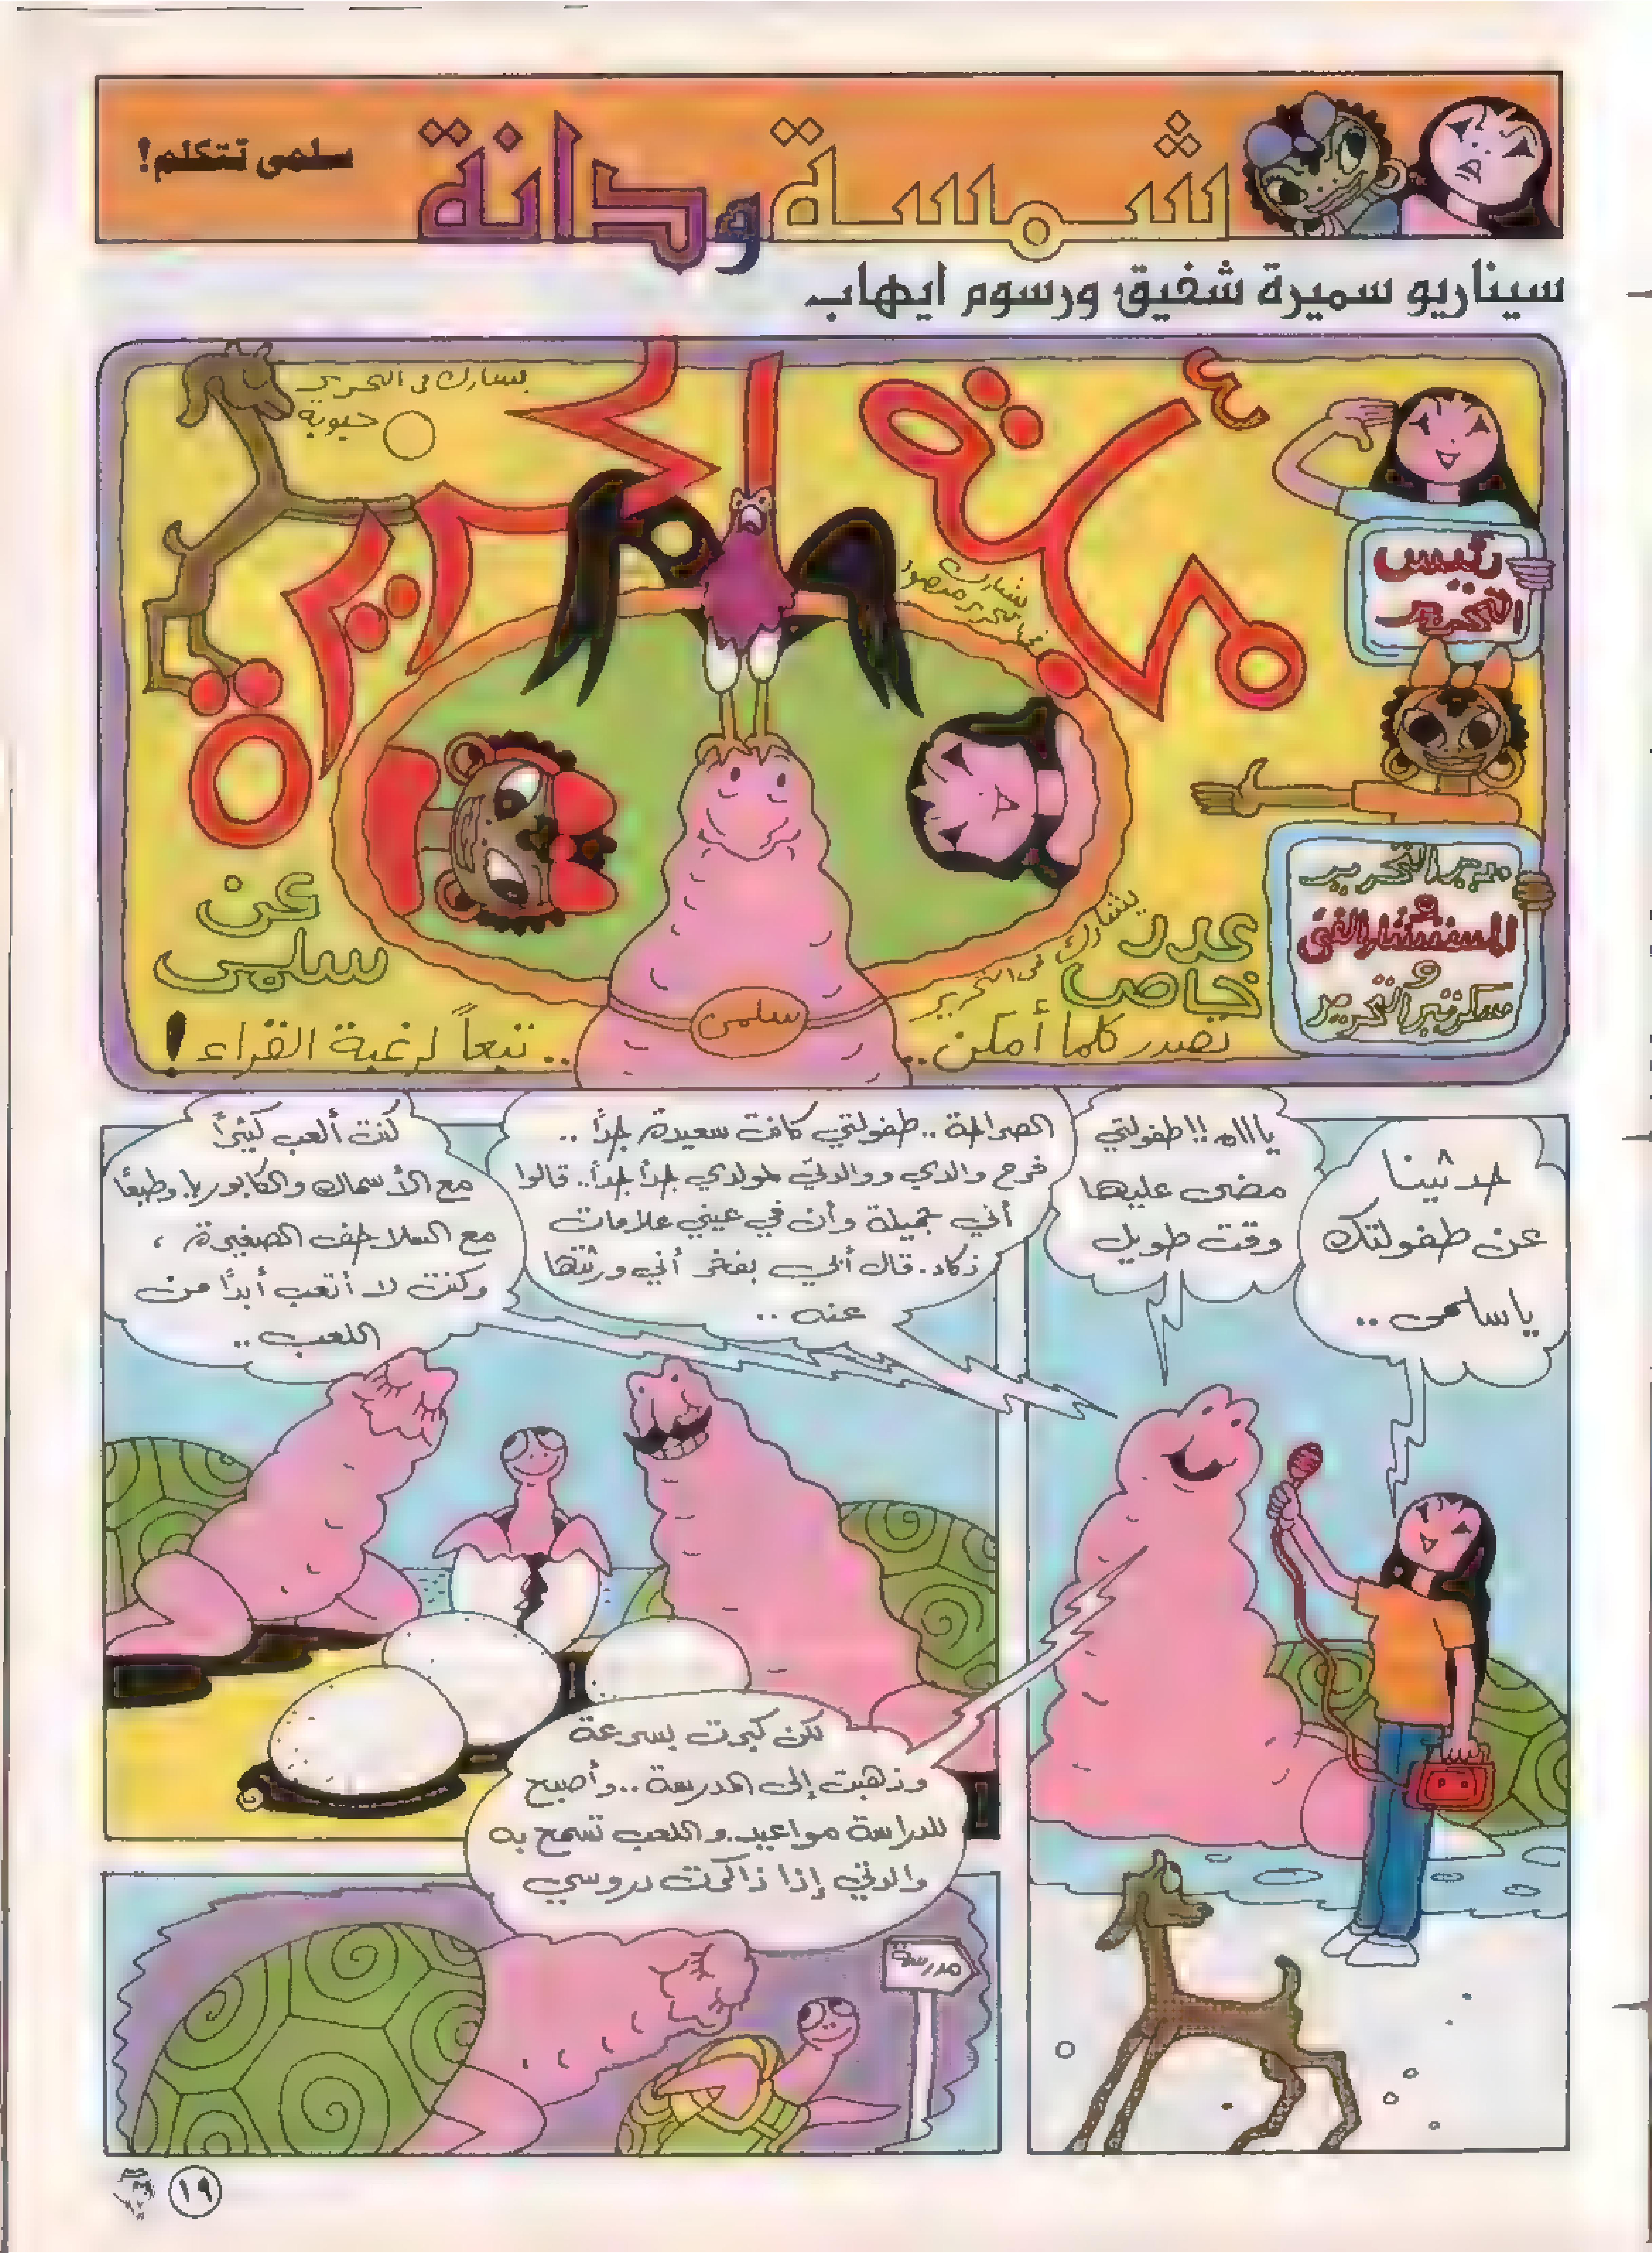 شمسة ودانة
سلمى تتكلم!
سيناريو سميرة شفيق ورسوم ايهاب
رئيس
التحرير
مدير التحرير
و
المستشار الفني
و
سكرتير التحرير
يشارك
في التحرير منصور
يشارك في التحرير
حبوبة
عدد
خاص
يشارك
في التحرير
عن
سلمى
سلمى
تصدر كلما أمكن..
.. تبعاً لرغبة القراء!
حدثينا
عن طفولتك
يا سلمى ..
ياااه!! طفولتي
مضى عليها
وقت طويل
الصراحة .. طفولتي كانت سعيدة جداً ..
فرح والدي ووالدتي لمولدي جداً جداً.. قالوا
أني جميلة وأن في عيني علامات
ذكاء. قال أبي بفخر أني ورثتها
عنه ..
كنت ألعب كثيراً
مع الأسماك والكابوريا. وطبعاً
مع السلاحف الصغيرة ،
وكنت لا أتعب أبداً من
اللعب ..
لكن كبرت بسرعة
وذهبت إلى المدرسة .. وأصبح
للدراسة مواعيد.. واللعب تسمح به
والدتي إذا ذاكرت دروسي
مدرسة
١٩